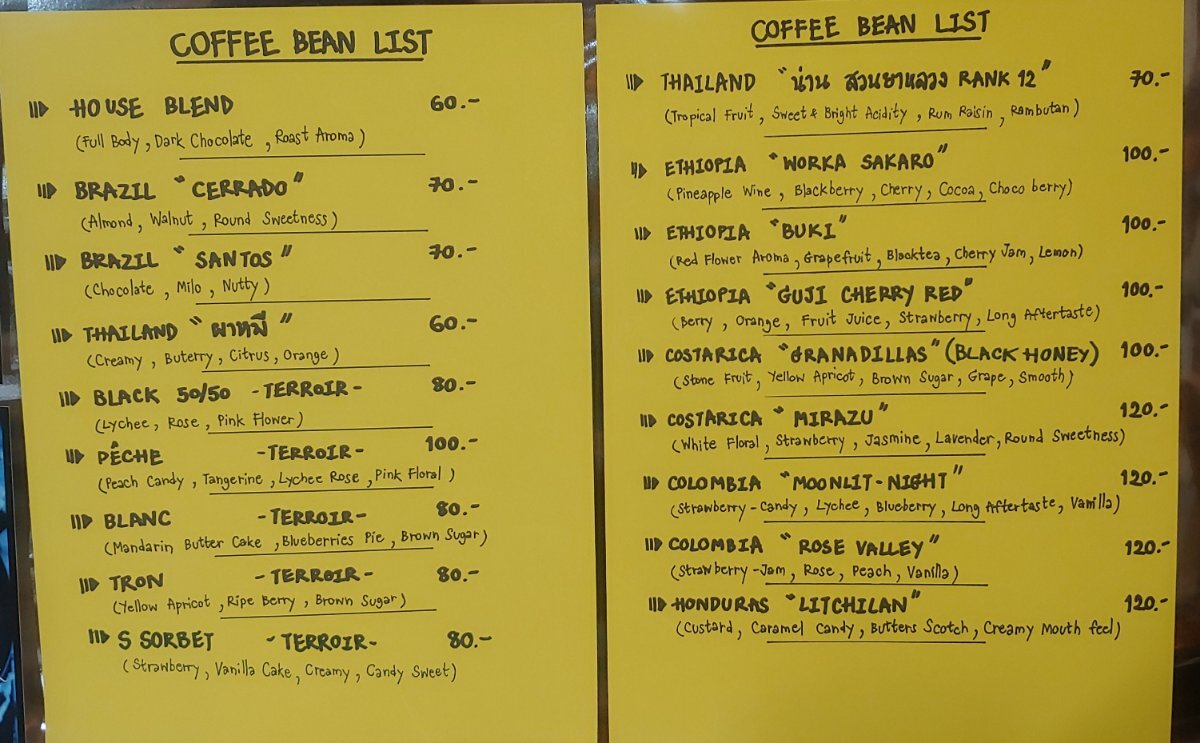 COFFEE BEAN LIST
HOUSE BLEND 60.-
(Full Body, Dark Chocolate, Roast Aroma)
BRAZIL "CERRADO" 70.-
(Almond, Walnut, Round Sweetness)
BRAZIL "SANTOS" 70.-
(Chocolate, Milo, Nutty)
THAILAND "ผาหมี" 60.-
(Creamy, Buterry, Citrus, Orange)
BLACK 50/50 -TERROIR- 80.-
(Lychee, Rose, Pink Flower)
PÊCHE -TERROIR- 100.-
(Peach Candy, Tangerine, Lychee Rose, Pink Floral)
BLANC -TERROIR- 80.-
(Mandarin Butter Cake, Blueberries Pie, Brown Sugar)
TRON -TERROIR- 80.-
(Yellow Apricot, Ripe Berry, Brown Sugar)
S SORBET -TERROIR- 80.-
(Strawberry, Vanilla Cake, Creamy, Candy Sweet)
COFFEE BEAN LIST
THAILAND "น่าน สวนยาหลวง RANK 12" 70.-
(Tropical Fruit, Sweet & Bright Acidity, Rum Raisin, Rambutan)
ETHIOPIA "WORKA SAKARO" 100.-
(Pineapple Wine, Blackberry, Cherry, Cocoa, Choco berry)
ETHIOPIA "BUKI" 100.-
(Red Flower Aroma, Grapefruit, Blacktea, Cherry Jam, Lemon)
ETHIOPIA "GUJI CHERRY RED" 100.-
(Berry, Orange, Fruit Juice, Strawberry, Long Aftertaste)
COSTARICA "GRANADILLAS" (BLACK HONEY) 100.-
(Stone Fruit, Yellow Apricot, Brown Sugar, Grape, Smooth)
COSTARICA "MIRAZU" 120.-
(White Floral, Strawberry, Jasmine, Lavender, Round Sweetness)
COLOMBIA "MOONLIT-NIGHT" 120.-
(Strawberry-Candy, Lychee, Blueberry, Long Aftertaste, Vanilla)
COLOMBIA "ROSE VALLEY" 120.-
(Strawberry-Jam, Rose, Peach, Vanilla)
HONDURAS "LITCHILAN" 120.-
(Custard, Caramel Candy, Butters Scotch, Creamy Mouth feel)